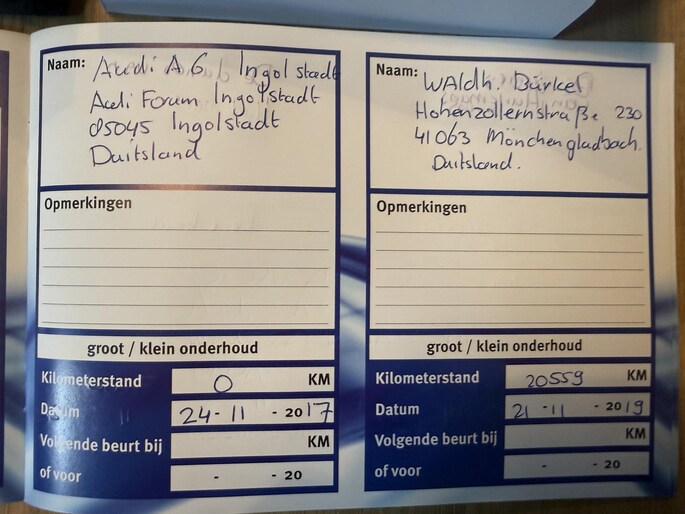 Naam: Audi A6 Ingolstadt
Audi Forum Ingolstadt
85045 Ingolstadt
Duitsland
Opmerkingen
groot / klein onderhoud
Kilometerstand 0 KM
Datum 24-11 - 2017
Volgende beurt bij KM
of voor - - 20
Naam: WAldh. Bürkel
Hohenzollernstraße 230
41063 Mönchengladbach.
Duitsland.
Opmerkingen
groot / klein onderhoud
Kilometerstand 20559 KM
Datum 21 -11 - 2019
Volgende beurt bij KM
of voor - - 20